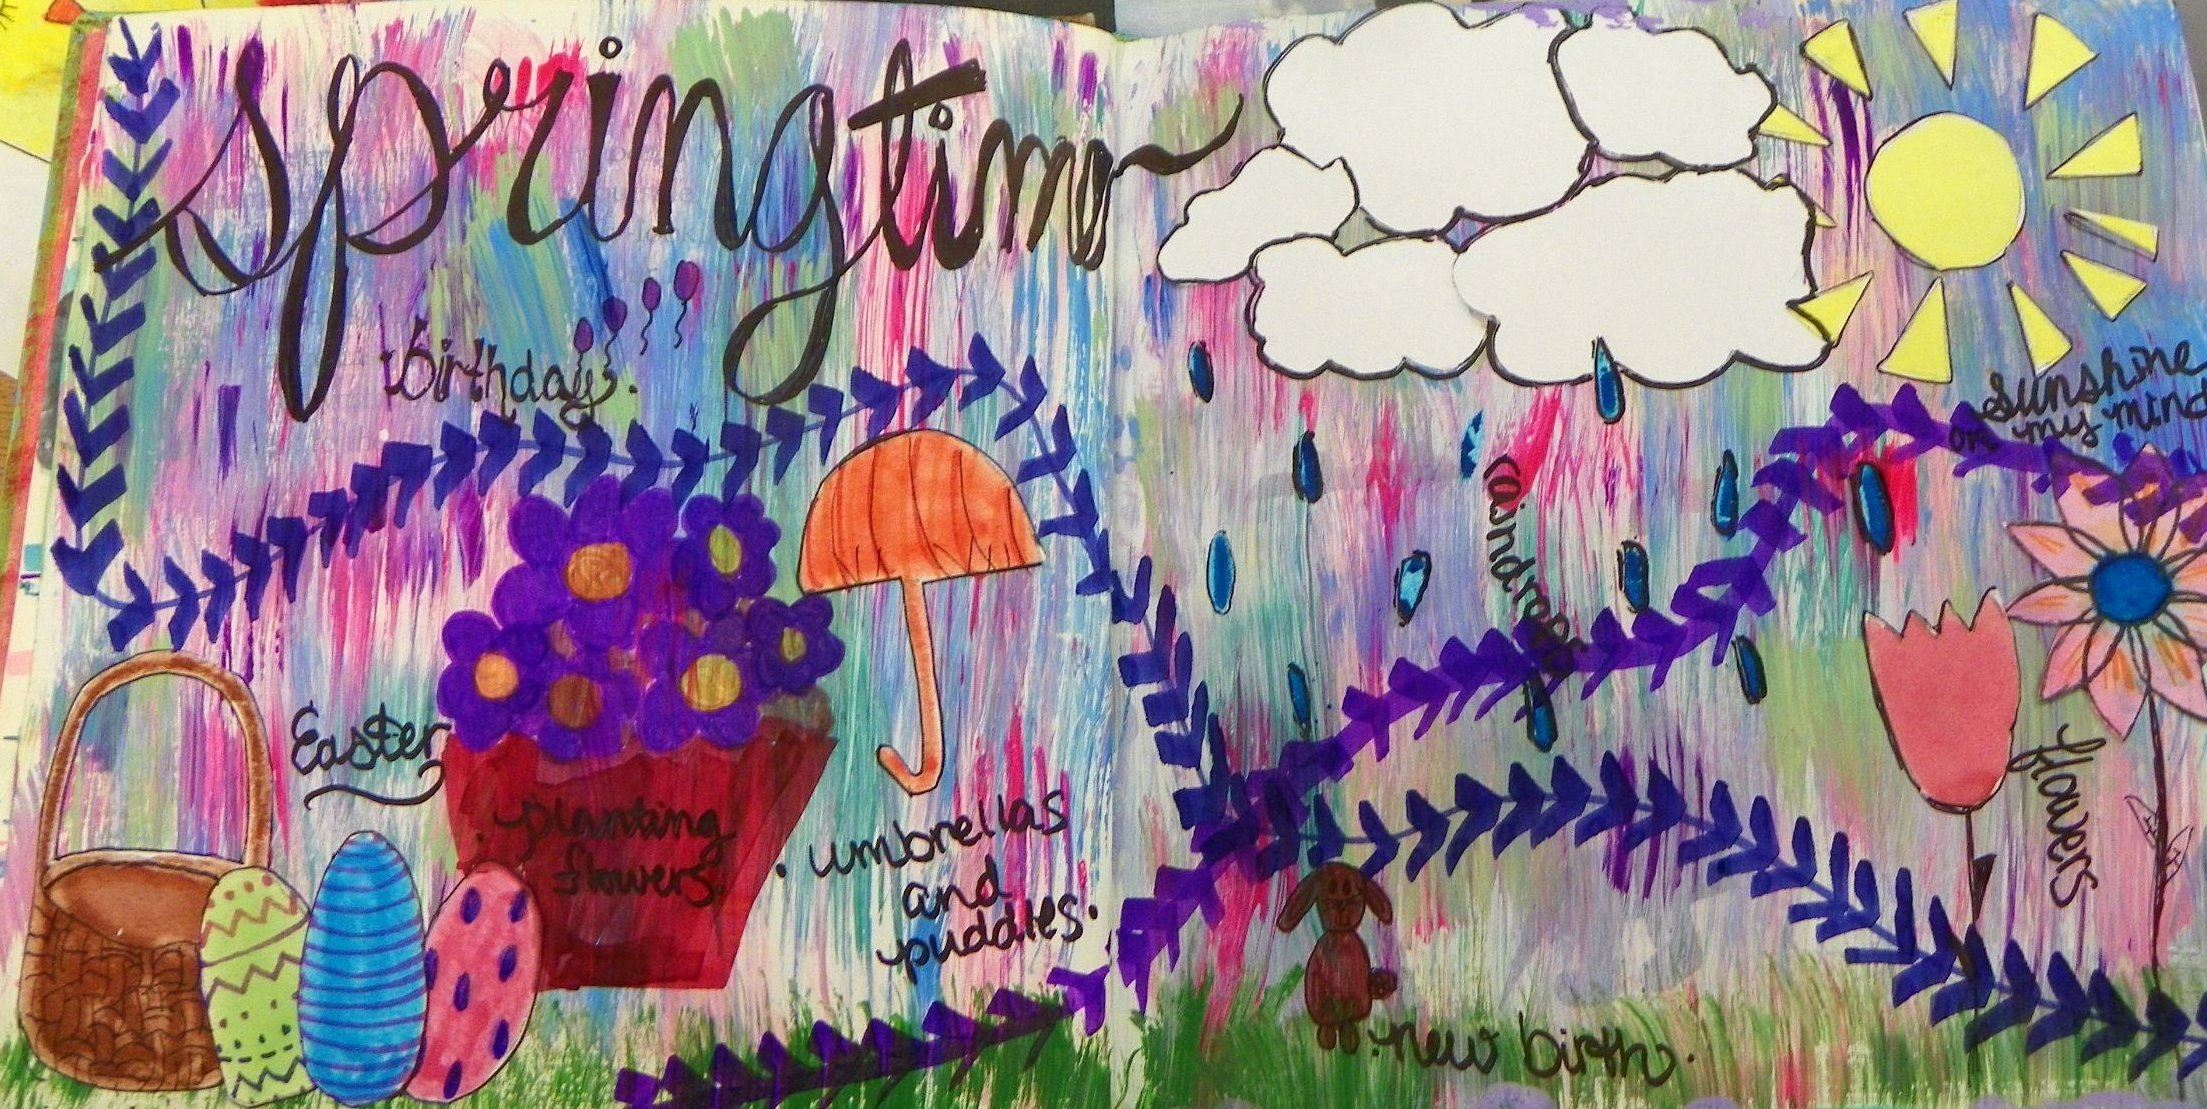 springtime
birthday.
Easter
planting
flowers.
umbrellas
and
puddles.
raindrops
sunshine
on my mind
flowers
.new birth.